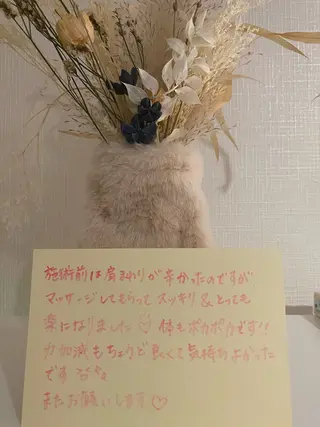 施術前は肩まわりが辛かったのですが
マッサージしてもらってスッキリ&とっても
楽になりました 体もポカポカです!!
力加減もちょうど良くて気持ちよかった
です
またお願いします♡